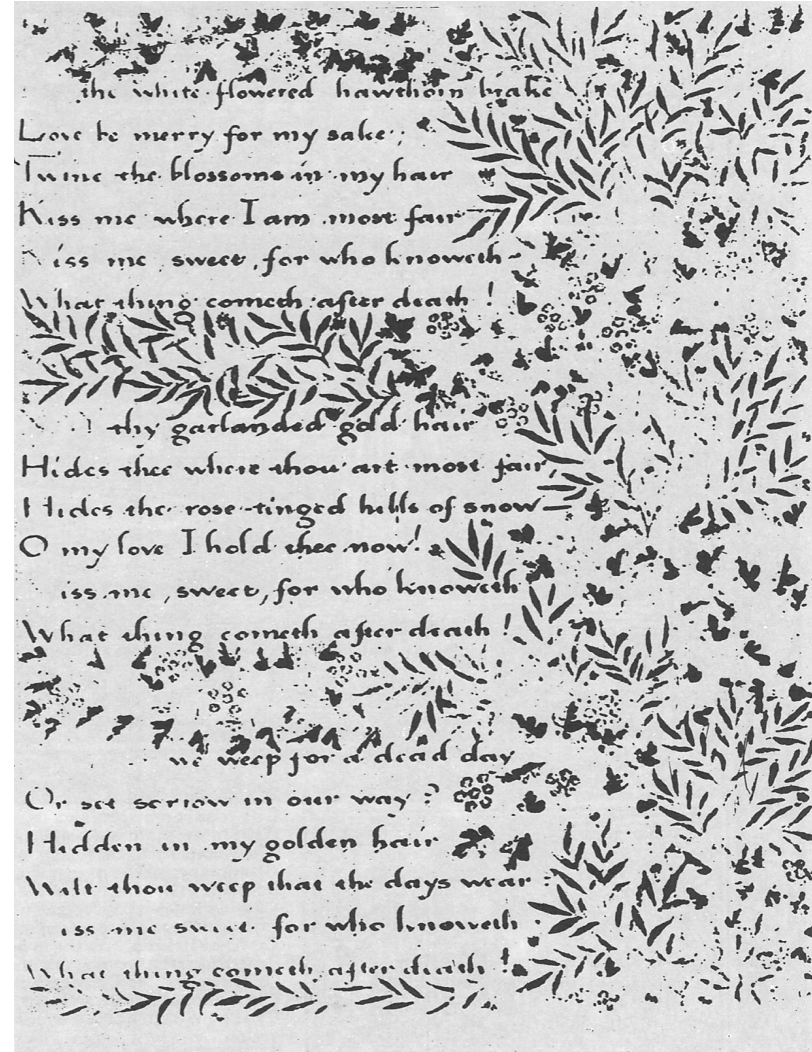 the white-flowered hawthorn brake
Love be merry for my sake;
Twine the blossoms in my hair
Kiss me where I am most fair—
Kiss me, sweet, for who knoweth
What thing cometh after death!
thy garlanded gold hair
Hides thee where thou art most fair,
Hides the rose-tinged hills of snow—
O my love I hold thee now!
iss me, sweet, for who knoweth
What thing cometh after death!
we weep for a dead day
Or set sorrow in our way?
Hidden in my golden hair
Wilt thou weep that the days wear
iss me sweet for who knoweth
What thing cometh after death!